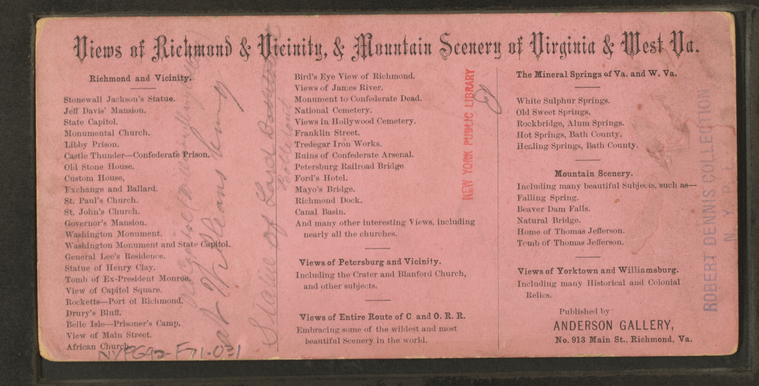 Views of Richmond & Vicinity, & Mountain Scenery of Virginia & West Va.
Richmond and Vicinity.
Stonewall Jackson's Statue.
Jeff Davis' Mansion.
State Capitol.
Monumental Church.
Libby Prison.
Castle Thunder—Confederate Prison.
Old Stone House.
Custom House,
Exchange and Ballard.
St. Paul's Church.
St. John's Church.
Governor's Mansion.
Washington Monument.
Washington Monument and State Capitol.
General Lee's Residence.
Statue of Henry Clay.
Tomb of Ex-President Monroe.
View of Capitol Square.
Rocketts—Port of Richmond.
Drury's Bluff.
Belle Isle—Prisoner's Camp.
View of Main Street.
African Church.
NYPG92-F71-031
Statue of
Bird's Eye View of Richmond.
Views of James River.
Monument to Confederate Dead.
National Cemetery.
Views in Hollywood Cemetery.
Franklin Street.
Tredegar Iron Works.
Ruins of Confederate Arsenal.
Petersburg Railroad Bridge
Ford's Hotel.
Mayo's Bridge.
Richmond Dock.
Canal Basin.
And many other interesting Views, including
nearly all the churches.
Views of Petersburg and Vicinity.
Including the Crater and Blanford Church,
and other subjects.
Views of Entire Route of C. and O. R. R.
Embracing some of the wildest and most
beautiful Scenery in the world.
NEW YORK PUBLIC LIBRARY
The Mineral Springs of Va. and W. Va.
White Sulphur Springs.
Old Sweet Springs,
Rockbridge, Alum Springs.
Hot Springs, Bath County.
Healing Springs, Bath County.
Mountain Scenery.
Including many beautiful Subjects, such as—
Falling Spring.
Beaver Dam Falls.
Natural Bridge.
Home of Thomas Jefferson.
Tomb of Thomas Jefferson.
Views of Yorktown and Williamsburg.
Including many Historical and Colonial
Relics.
Published by
ANDERSON GALLERY,
No. 913 Main St., Richmond, Va.
ROBERT DENNIS COLLECTION